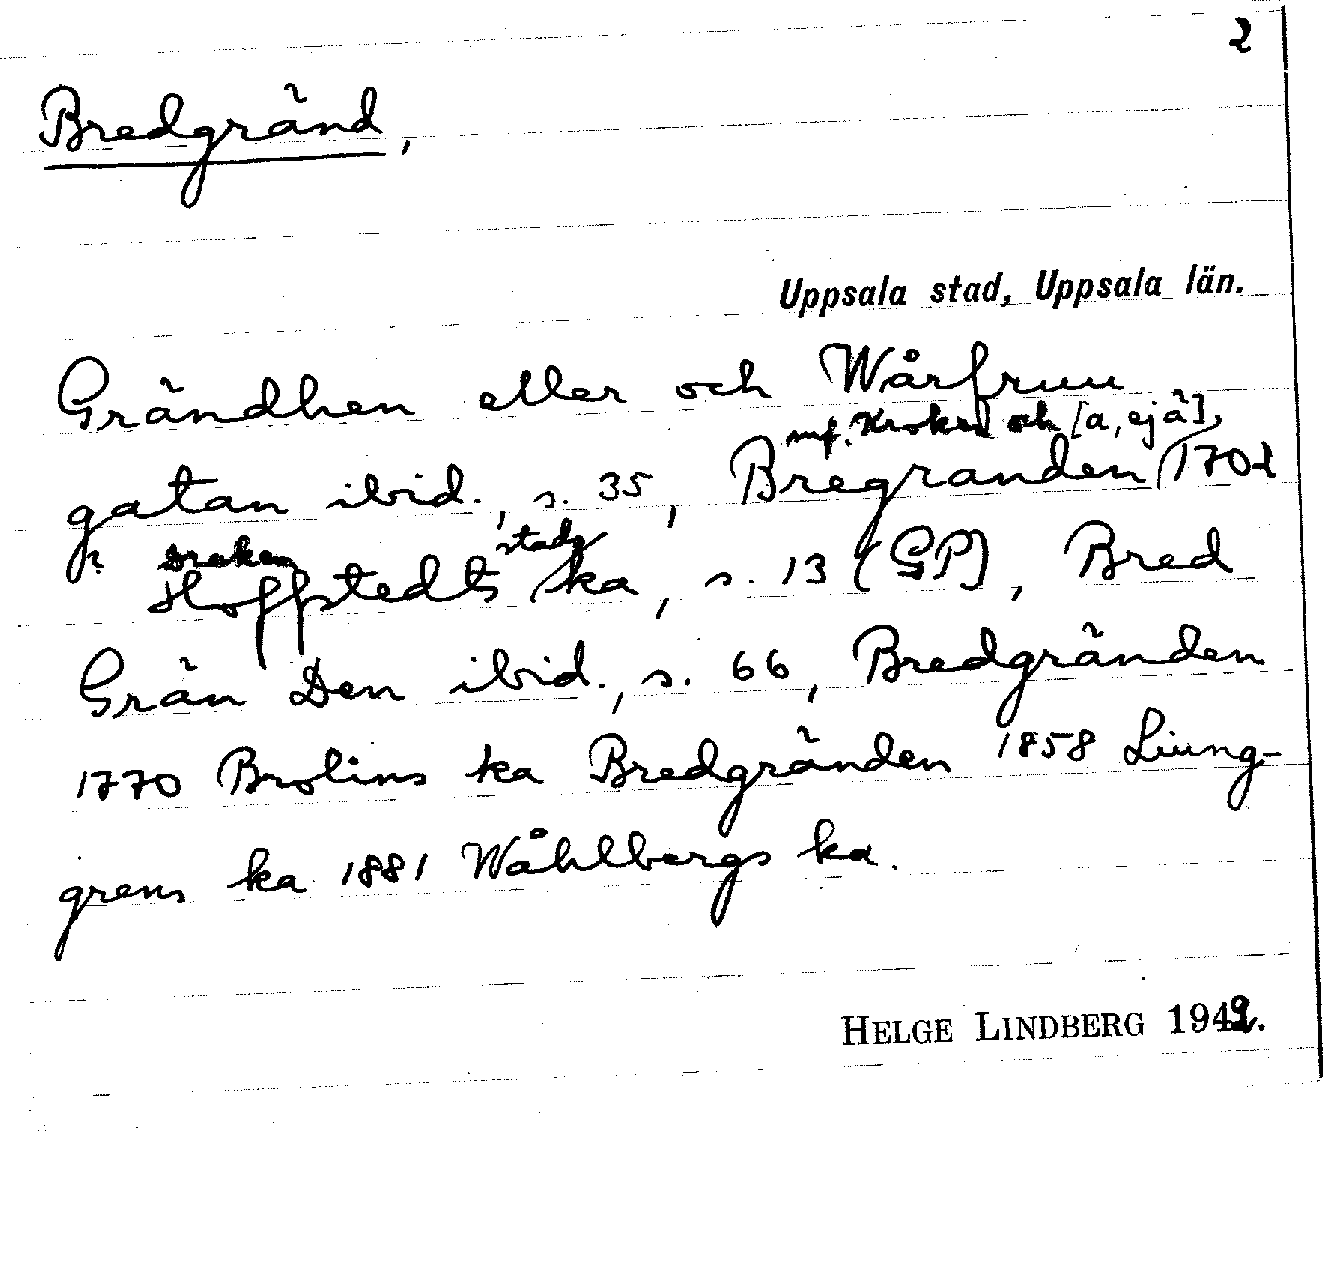 2
Bredgränd,
Uppsala stad, Uppsala län.
Grändhen eller och Wårfruu
mf. Kroken och [a, ej ä],
gatan ibid., s. 35, Bregranden 1702
Draken stads
Hoffstedts ka, s. 13 (GP), Bred
Grän Den ibid., s. 66, Bredgränden
1770 Brolins ka Bredgränden 1858 Liung-
grens ka 1881 Wåhlbergs ka.
HELGE LINDBERG 1942.